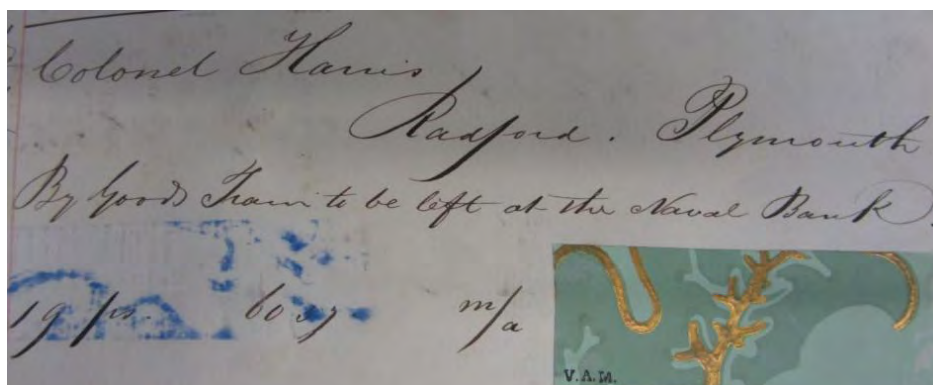 Colonel Harris
Radford. Plymouth
By Goods Train to be left at the Naval Bank
19 ps. 6039 m/a
V.A.M.